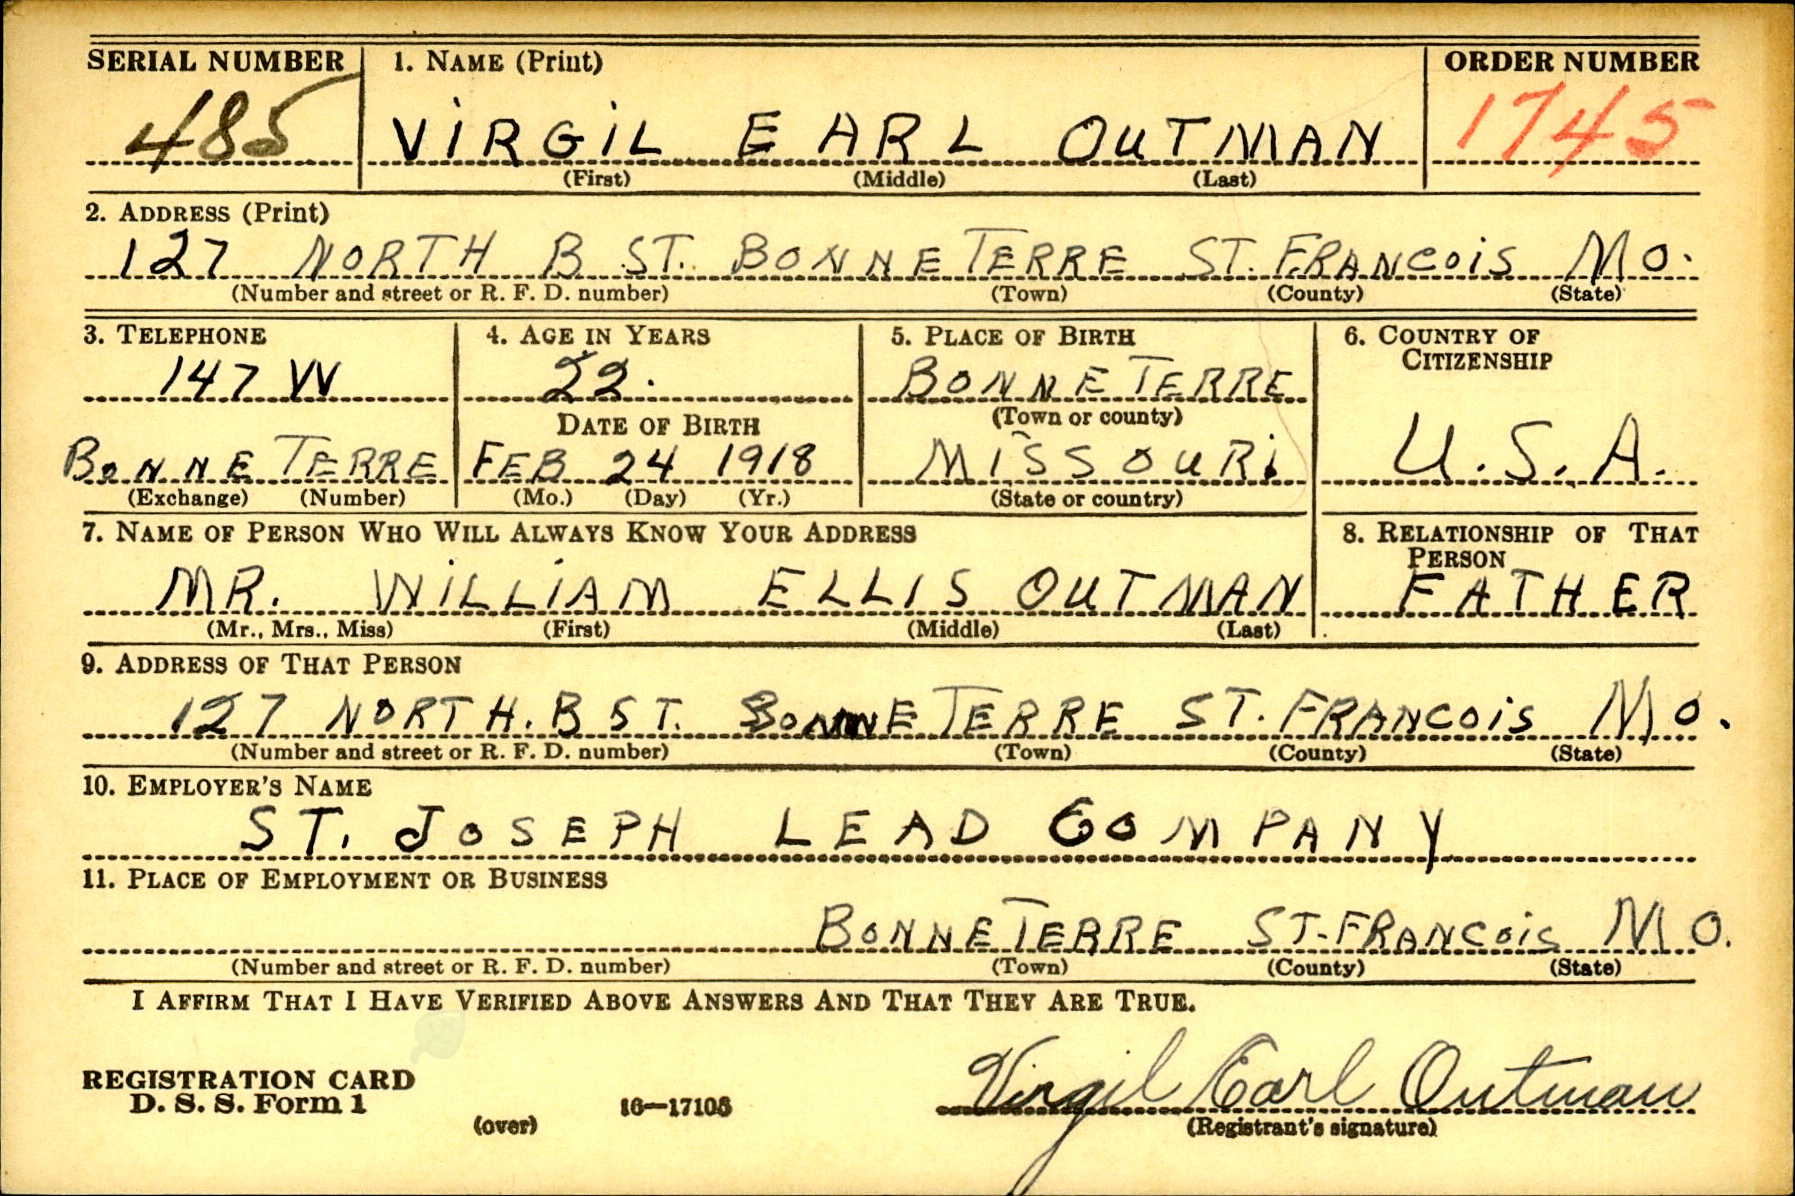 SERIAL NUMBER 1. NAME (Print) ORDER NUMBER
485 VIRGIL EARL OUTMAN 1745
(First) (Middle) (Last)
2. ADDRESS (Print)
127 NORTH B ST. BONNE TERRE ST. FRANCOIS MO.
(Number and street or R. F. D. number) (Town) (County) (State)
3. TELEPHONE 4. AGE IN YEARS 5. PLACE OF BIRTH 6. COUNTRY OF CITIZENSHIP
147 W 22. BONNE TERRE
DATE OF BIRTH (Town or county)
BONNE TERRE FEB 24 1918 MISSOURI U.S.A.
(Exchange) (Number) (Mo.) (Day) (Yr.) (State or country)
7. NAME OF PERSON WHO WILL ALWAYS KNOW YOUR ADDRESS 8. RELATIONSHIP OF THAT PERSON
MR. WILLIAM ELLIS OUTMAN FATHER
(Mr., Mrs., Miss) (First) (Middle) (Last)
9. ADDRESS OF THAT PERSON
127 NORTH. B ST. BONNE TERRE ST. FRANCOIS MO.
(Number and street or R. F. D. number) (Town) (County) (State)
10. EMPLOYER'S NAME
ST. JOSEPH LEAD COMPANY
11. PLACE OF EMPLOYMENT OR BUSINESS
BONNE TERRE ST. FRANCOIS MO.
(Number and street or R. F. D. number) (Town) (County) (State)
I AFFIRM THAT I HAVE VERIFIED ABOVE ANSWERS AND THAT THEY ARE TRUE.
REGISTRATION CARD
D. S. S. Form 1
(over) 16—17105
Virgil Earl Outman
(Registrant's signature)